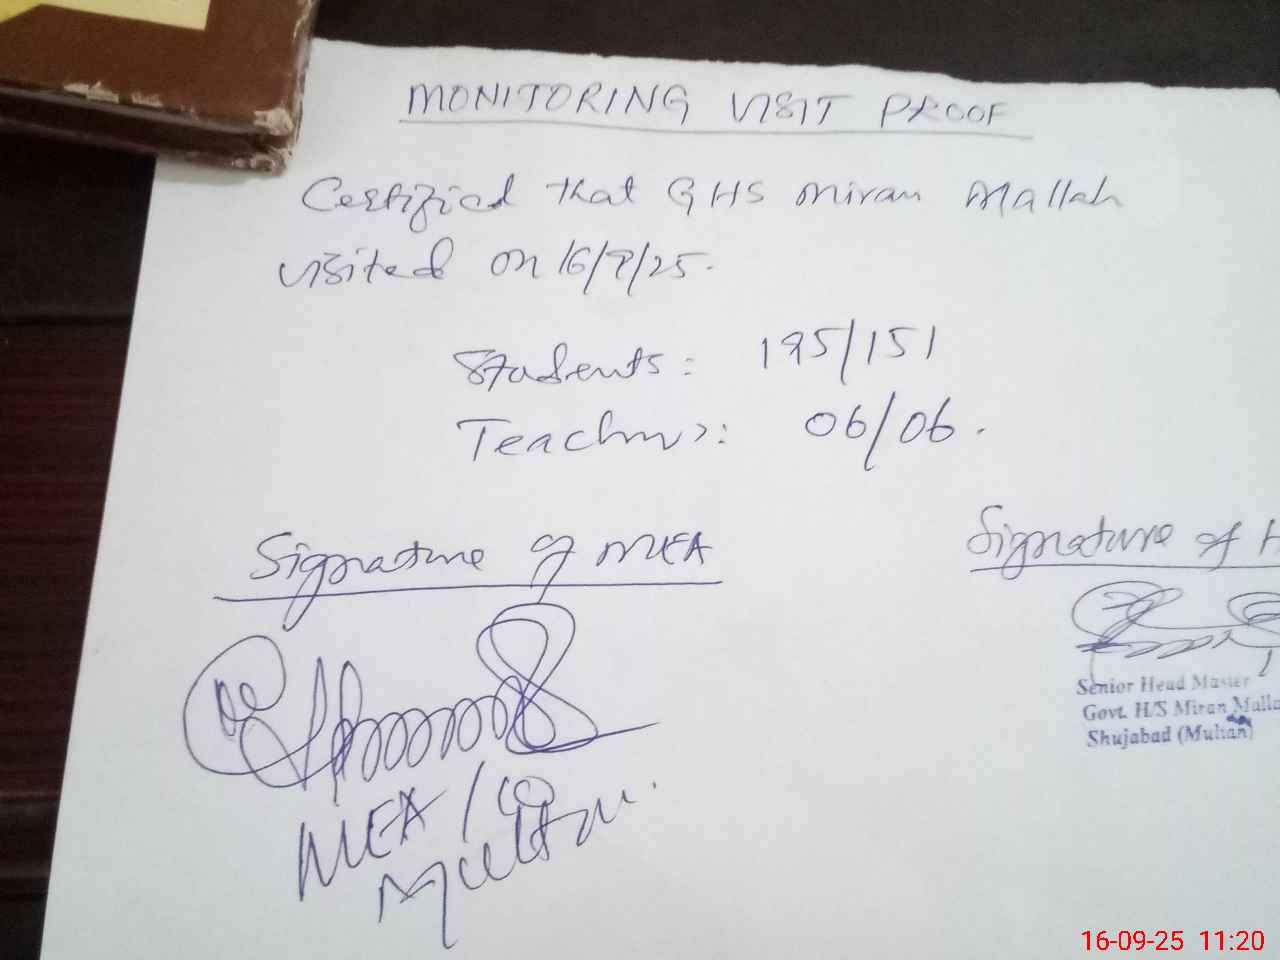 MONITORING VISIT PROOF
Certified that GHS Miran Mallah
visited on 16/9/25.
Students: 195/151
Teachers: 06/06.
Signature of MEA
Signature of H
MEA /
Multan.
Senior Head Master
Govt. H/S Miran Malla
Shujabad (Multan)
16-09-25 11:20